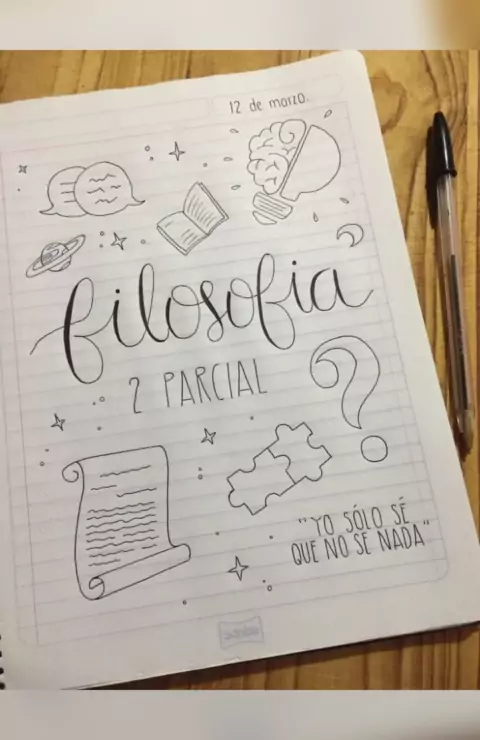 12 de marzo.
filosofia
2 PARCIAL
"YO SÓLO SÉ
QUE NO SE NADA"